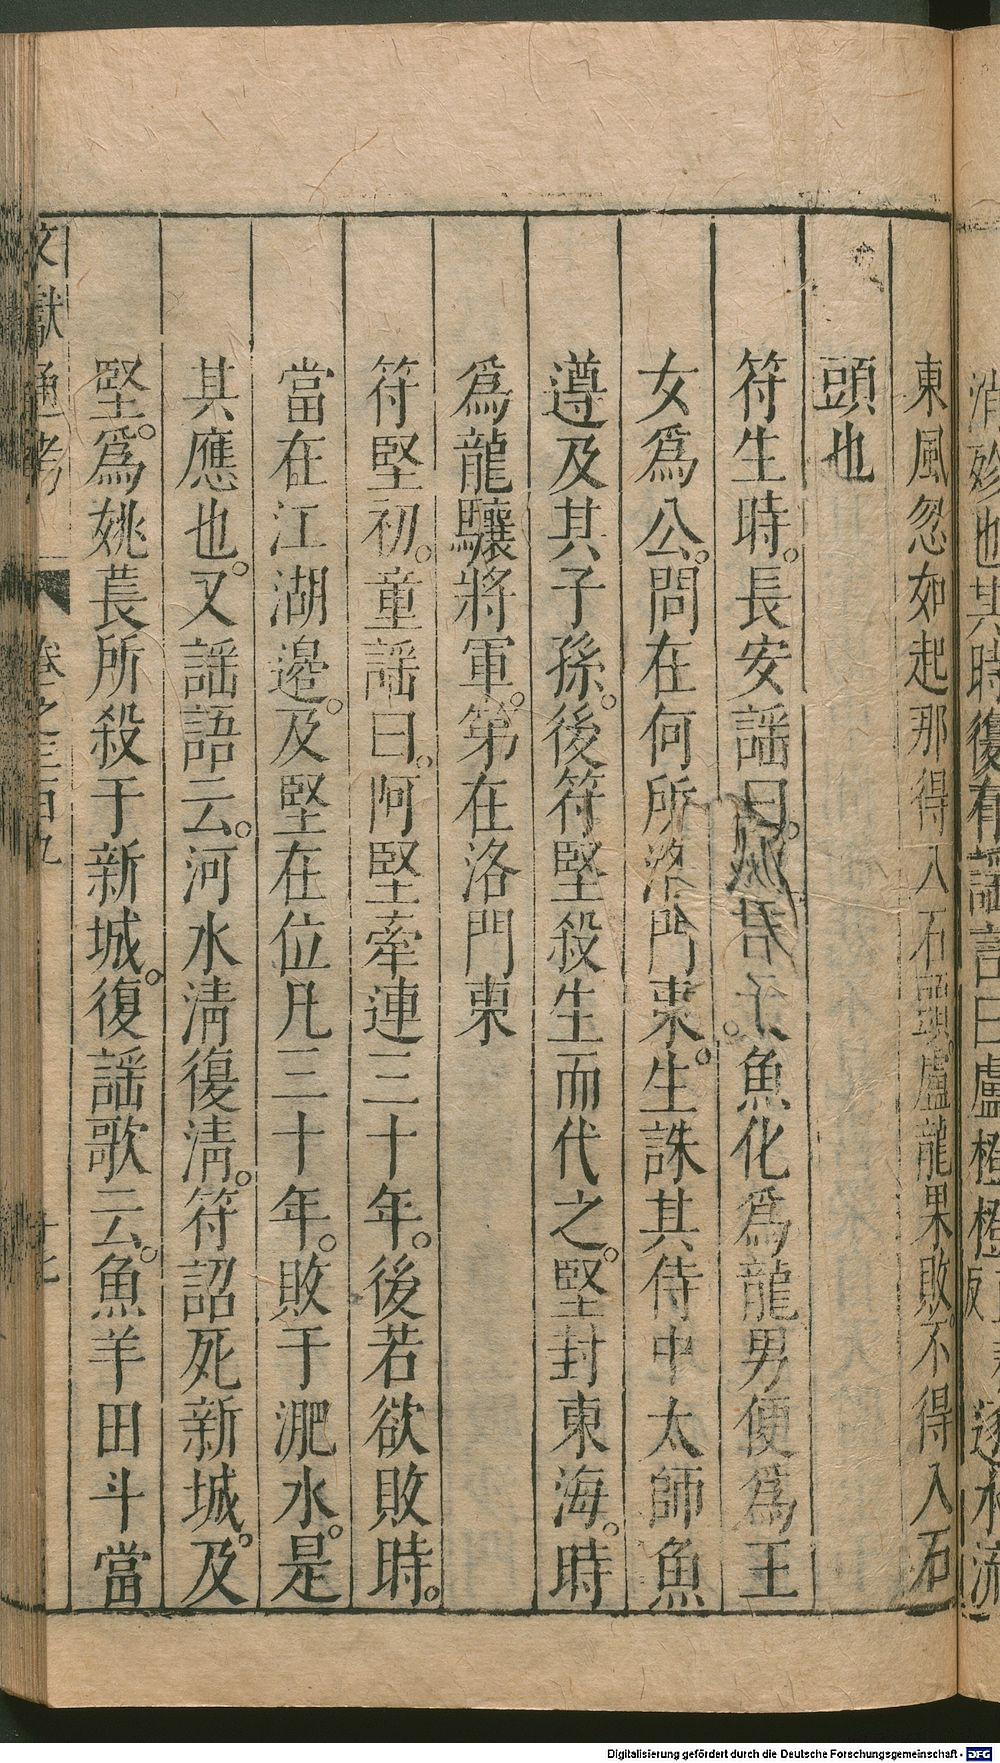 東風忽如起那得入石頭盧龍果敗不得入石
頭也
符生時。長安謠曰。君子。魚化爲龍男便爲王
女爲公。問在何所洛門東。生誅其侍中太師魚
遵及其子孫。後符堅殺生而代之。堅封東海。時
爲龍驤將軍。第在洛門東
符堅初。童謠曰。阿堅牽連三十年。後若欲敗時。
當在江湖邊。及堅在位凡三十年。敗于淝水。是
其應也。又謠語云。河水淸復淸。符詔死新城。及
堅。爲姚萇所殺于新城。復謠歌云。魚羊田斗當
文獻通考 卷之三百九 十七
Digitalisierung gefördert durch die Deutsche Forschungsgemeinschaft - DFG